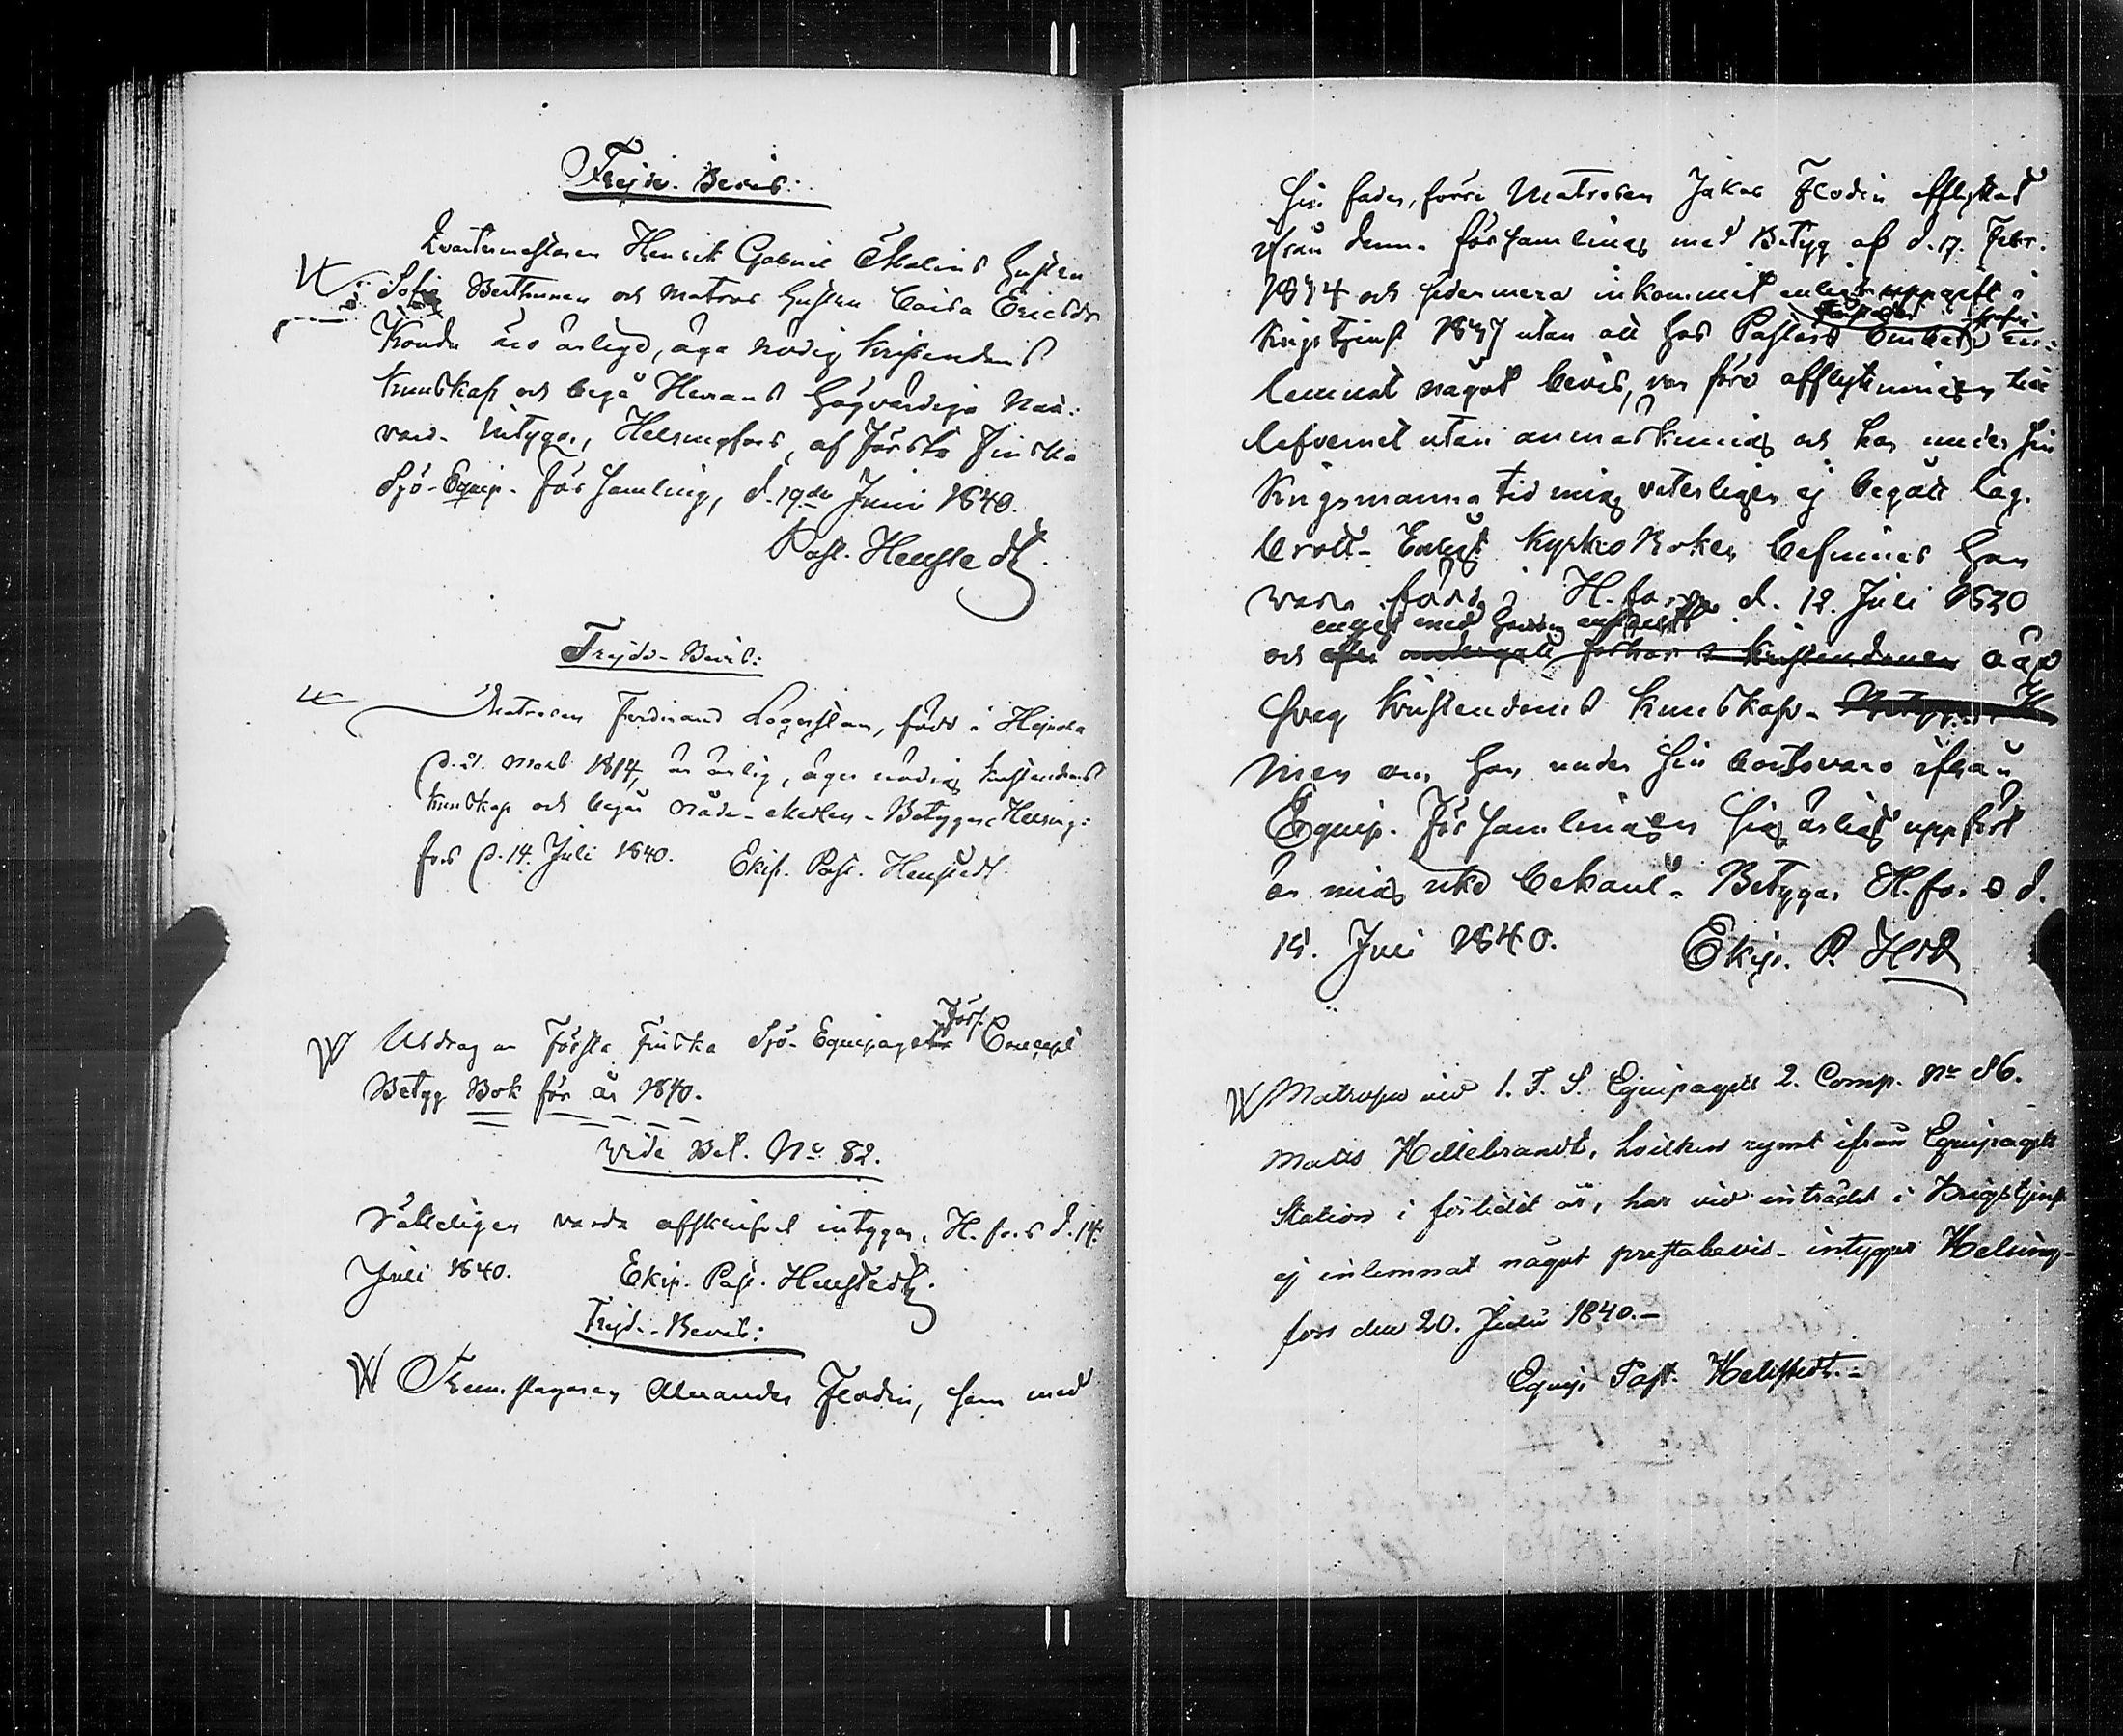 Frejde-Bevis:
Qvartermästaren Henrik Gabriel Malins hustru
Sofia och Matros hustru Caisa Ericsdr
äro ärliga, äga nödig Kristendoms
kunskap och begå Herrans Högvärdiga Natt-
vard. Intygar, Helsingfors, af Första Finska
Sjö-Equip. Församling, d. 19de Juni 1840.
Past. Hellstedt.
Frejde-Bevis:
Matrosen Ferdinand Lagerstam, född i Heinola
d. 21. Mars 1814, är ärlig, äger nödig kristendoms
kunskap och begår Nåde-Medlen. Betygar Helsing-
fors d. 14. Juli 1840. Ekip. Past. Hellstedt.
Utdrag av Första Finska Sjö-Equipagets Förs. Concept
Betyg Bok för år 1840.
Vide Bet. No 82.
Rätteligen vara afskrifvet intygar, H.fors d. 14.
Juli 1840. Ekip. Past. Hellstedt.
Frejde-Bevis:
Trumslagaren Alexander Flodin, som med
Sin fader, förre Matrosen Jakob Flodin afflyttat
ifrån denna församling med Betyg af d. 17. Febr.
1834 och sedermera inkommit enligt uppgift i
Krigstjenst 1837 utan att hos Pastors Embetet in-
lemnat något bevis, var före afflyttningen till
lefvernet utan anmärkning och har under sin
Krigsmanna tid mig veterligen ej begått lag-
brott. Enligt Kyrko Boken befinnes han
vara född i H.fors d. 12. Juli 1820
och äga
svag Kristendoms kunskap.
Men om han under sin bortovaro ifrån
Equip. Församlingen sig ärligt uppfört
är mig icke bekant. Betygar H.fors d.
15. Juli 1840. Ekip. P. Hdt
Matrosen vid 1. F. S. Equipagets 2. Comp. No 86.
Matts Hillebrandt, hvilken rymt ifrån Equipagets
Station i förledet år, har vid inträdet i Krigstjenst
ej inlemnat något prestabevis. intygar Helsing-
fors den 20. Juli 1840.-
Equip. Past. Hellstedt.-